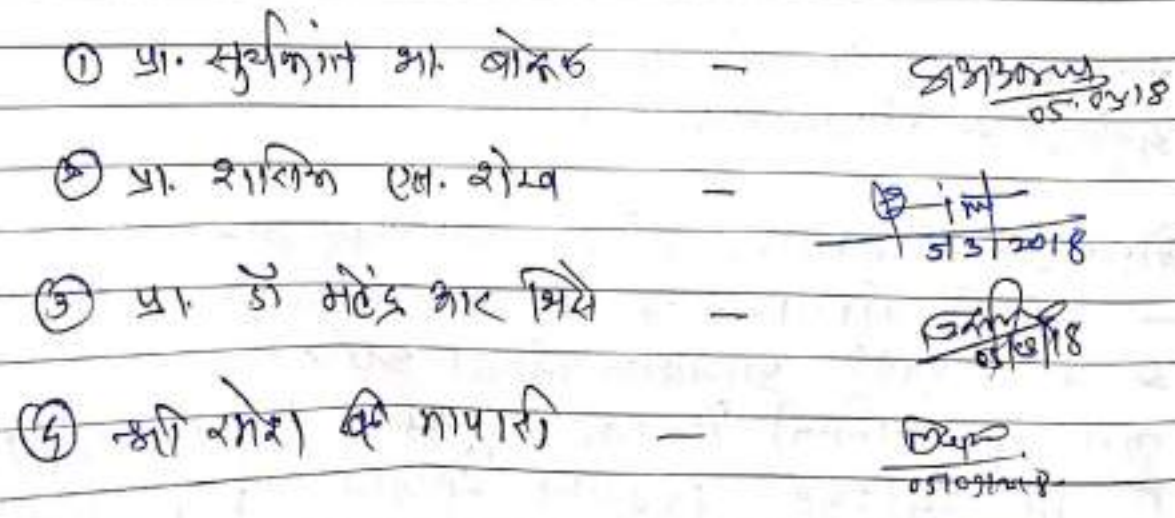 ① प्रा. सुर्यकांत भा. बोल्डे – 05.03.18
② प्रा. शालिम एल. शेख – 5/3/2018
③ प्रा. डॉ महेंद्र आर भिसे – 05/03/18
④ श्री रमेश व्ही मापारी – 05/03/2018